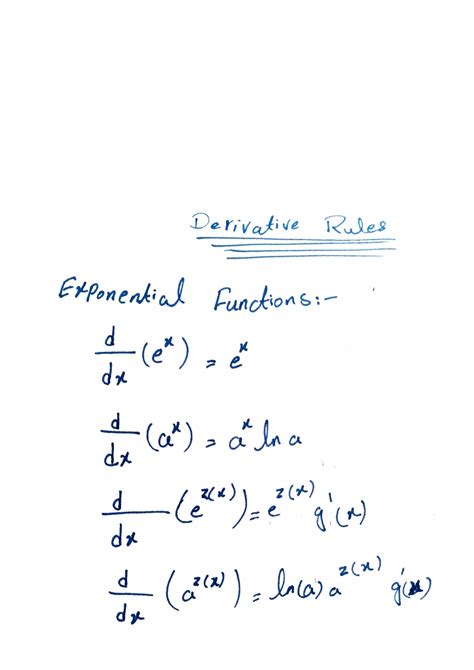 Derivative Rules
Exponential Functions:-
d/dx (e^x) = e^x
d/dx (a^x) = a^x ln a
d/dx (e^z(x)) = e^z(x) g'(x)
d/dx (a^z(x)) = ln(a) a^z(x) g'(x)